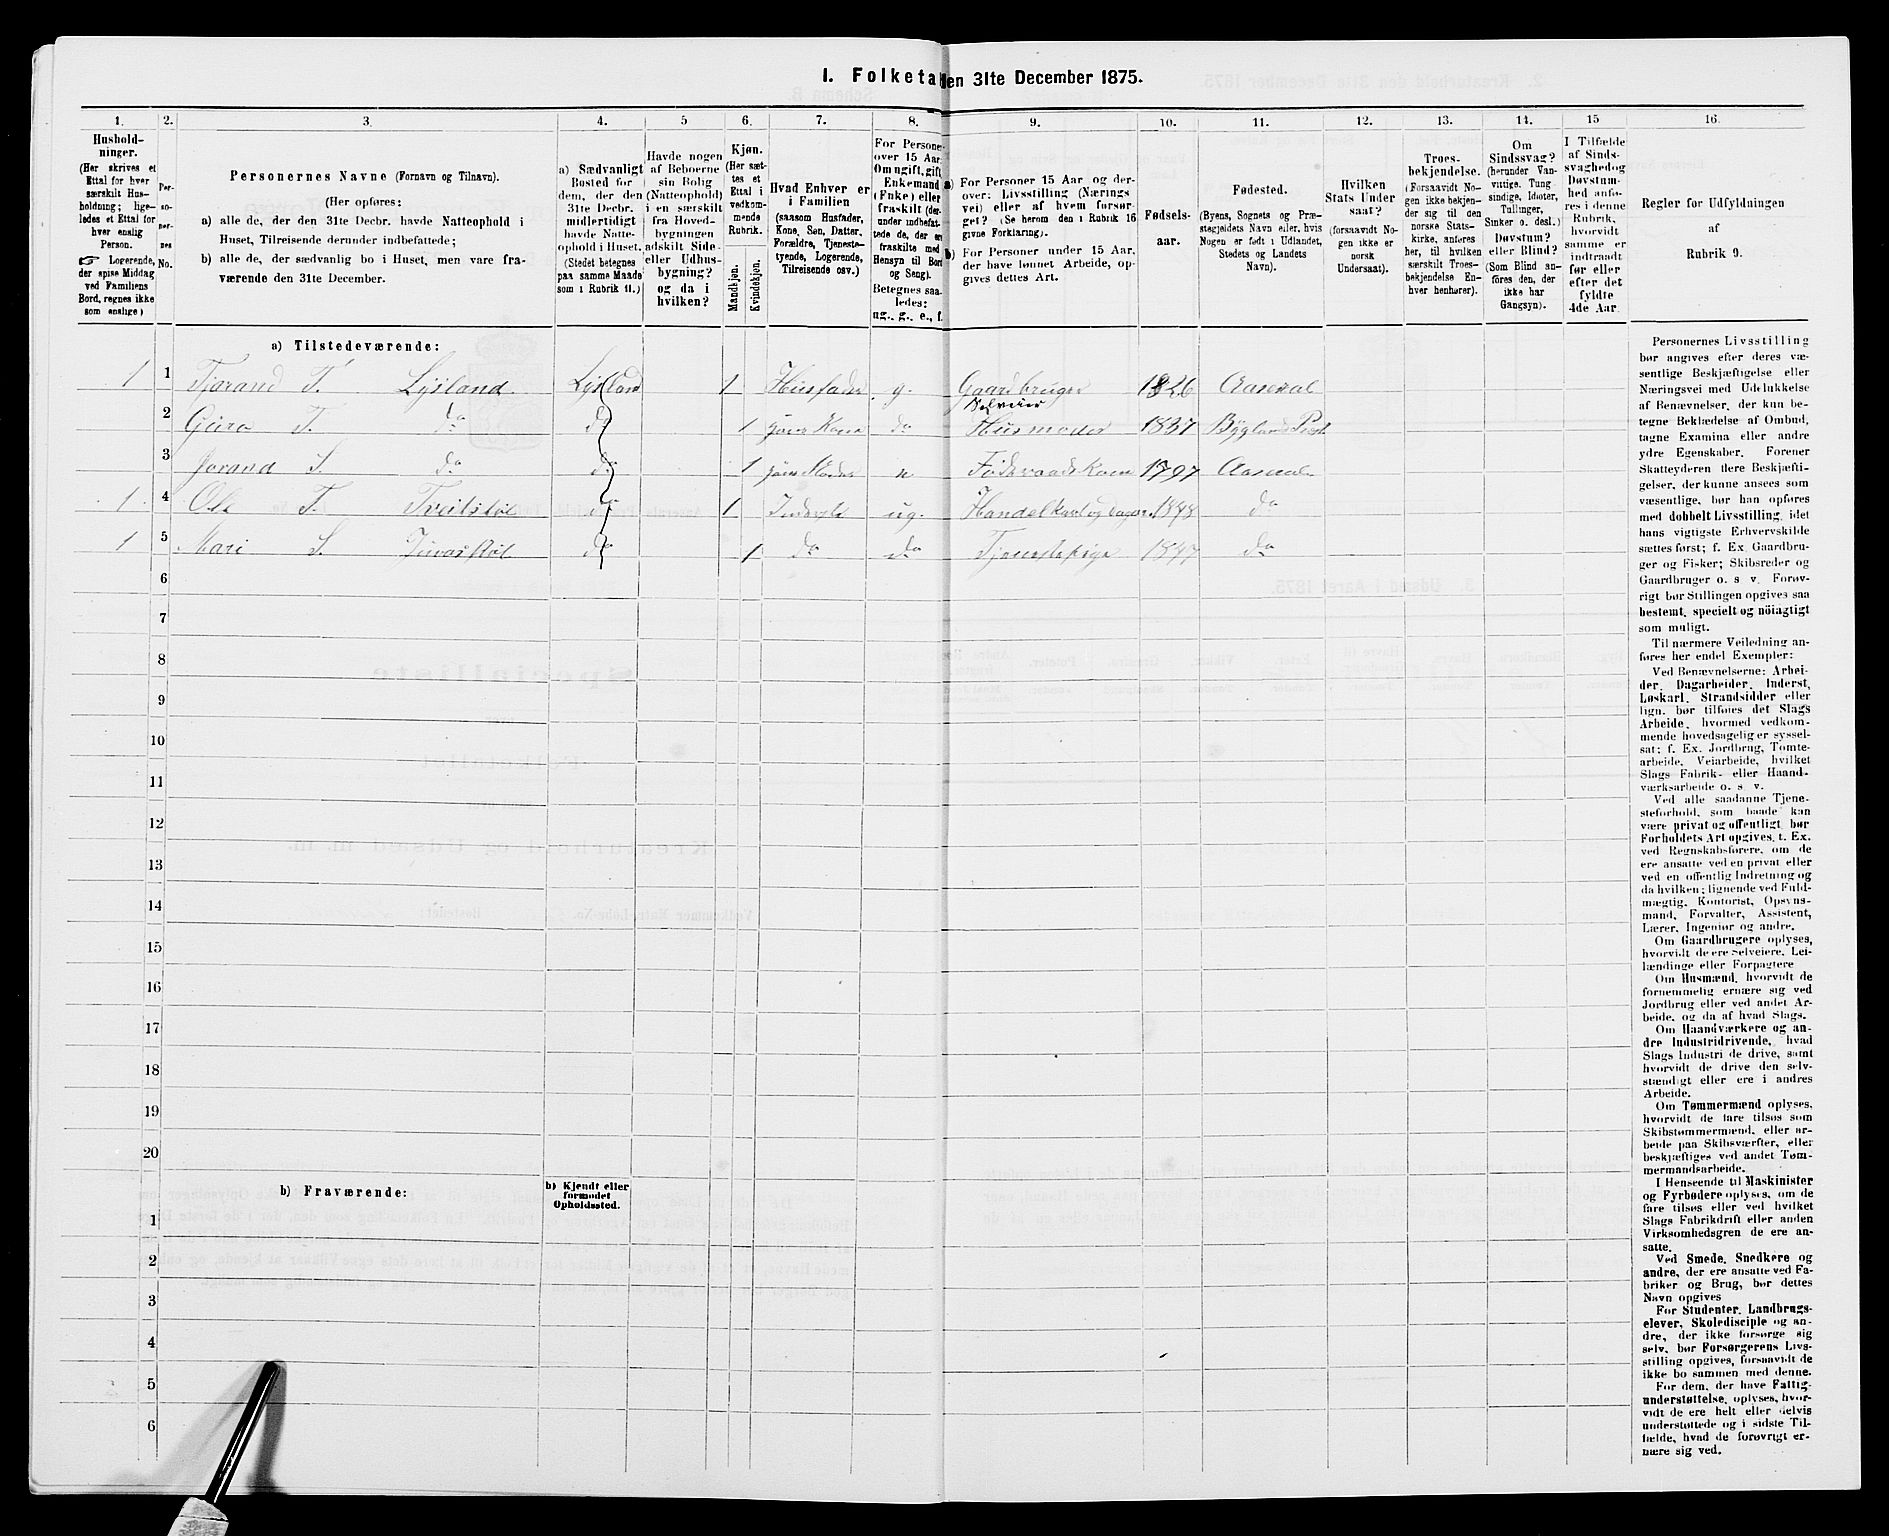 1. Folketa den 31te December 1875.
1. 2. 3. 4. 5 6. 7. 8. 9. 10. 11. 12. 13. 14. 15 16.
Hushold-
ninger.
(Her skrives et
Ettal for hver
særskilt Hus-
holdning; lige-
ledes et Ettal for
hver enslig
Person.
☞ Logerende,
der spise Middag
ved Familiens
Bord, regnes ikke
som enslige)
Per-
so-
ner-
nes
No.
Personernes Navne (Fornavn og Tilnavn).
(Her opføres:
a) alle de, der den 31te Decbr. havde Natteophold i
Huset, Tilreisende derunder indbefattede;
b) alle de, der sædvanlig bo i Huset, men vare fra-
værende den 31te December.
a) Sædvanligt
Bosted for
dem, der den
31te Decbr.
midlertidigt
havde Natte-
ophold i Huset.
(Stedet betegnes
paa samme Maade
som i Rubrik 11.)
Havde nogen
af Beboerne
sin Bolig
(Natteophold)
i en særskilt
fra Hoved-
bygningen
adskilt Side-
eller Udhus-
bygning?
og da i
hvilken?
Kjøn.
(Her sæt-
tes et
Ettal i
vedkom-
mende
Rubrik.
Mandkjøn.
Kvindekjøn.
Hvad Enhver er
i Familien
(saasom Husfader,
Kone, Søn, Datter,
Forældre, Tjeneste-
tyende, Logerende,
Tilreisende osv.)
For Persone
over 15 Aar
Om ugift, gift
Enkemand
(Enke) eller
fraskilt (der-
under indbefat-
tede de, der er
fraskilte med
Hensyn til Bord
og Seng).
Betegnes saa-
ledes:
ug., g., e., f.
a) For Personer 15 Aar og der-
over: Livsstilling (Nærings
vei) eller af hvem forsør-
get? (Se herom den i Rubrik 16
givne Forklaring).
b) For Personer under 15 Aar,
der have lønnet Arbeide, op-
gives dettes Art.
Fødsels-
aar.
Fødested.
(Byens, Sognets og Præ-
stegjeldets Navn eller, hvis
Nogen er født i Udlandet,
Stedets og Landets
Navn).
Hvilken
Stats Under
saat?
(forsaavidt No-
gen ikke er
norsk
Undersaat).
Troes-
bekjendelse.
(Forsaavidt No-
gen ikke bekjen-
der sig til den
norske Stats-
kirke, anføres
her, til hvilken
særskilt Troes-
bekjendelse En-
hver henhører).
Om
Sindssvag?
(herunder Van-
vittige, Tung
sindige, Idioter,
Tullinger,
Sinker o. desl.)
Døvstum?
eller Blind?
(Som Blind an-
føres den, der
ikke har
Gangsyn).
I Tilfælde
af Sinds-
svaghed og
Døvstum-
hed anfø-
res i denne
Rubrik,
hvorvidt
samme er
indtraadt
før eller
efter det
fyldte
4de Aar.
Regler for Udfyldningen
af
Rubrik 9.
a) Tilstedeværende:
1 1 Tjorand T. Lysland Lysland 1 Husfader g. Gaardbruger Selveier 1826 Aaseral
2 Gura T. do do 1 hans Kone do Husmoder 1837 Byglands Præst.
3 Jorand S. do do 1 hans Moder Føderaads Kone 1797 Aaseral
1 4 Ole T. Tveitstøl do 1 Inderste ug. 1848 do
1 5 Mari S. do 1 do do Tjenestepige 1847 do
6
7
8
9
10
11
12
13
14
15
16
17
18
19
20
b) Fraværende:
b) Kjendt eller
formodet
Opholdssted.
1
2
3
4
5
6
Personernes Livsstilling
bør angives efter deres væ-
sentlige Beskjæftigelse eller
Næringsvei med Udelukkelse
af Benævnelser, der kun be-
tegne Beklædelse af Ombud,
tagne Examina eller andre
ydre Egenskaber. Forener
Skatteyderen flere Beskjæfti-
gelser, der kunne ansees som
væsentlige, bør han opføres
med dobbelt Livsstilling, idet
hans vigtigste Erhvervskilde
sættes først; f. Ex. Gaardbru-
ger og Fisker; Skibsreder og
Gaardbruger o. s v. Forøv-
rigt bør Stillingen opgives saa
bestemt, specielt og nöiagtigt
som muligt.
Til nærmere Veiledning an-
føres her endel Exempler:
Ved Benævnelserne: Arbei-
der, Dagarbeider, Inderst,
Løskarl, Strandsidder eller
lign. bør tilføies det Slags
Arbeide, hvormed vedkom-
mende hovedsagelig er syssel-
sat; f. Ex. Jordbrug, Tomte-
arbeide, Veiarbeide, hvilket
Slags Fabrik- eller Haand-
værksarbeide o. s. v.
Ved alle saadanne Tjene-
steforhold, som baade kan
være privat og offentligt, bør
Forholdets Art opgives, t. Ex.
ved Regnskabsførere, om de
ere ansatte ved en privat eller
ved en offentlig Indretning og
da hvilken; lignende ved Fuld-
mægtig, Kontorist, Opsyns-
mand, Forvalter, Assistent,
Lærer, Ingeniør og andre.
Om Gaardbrugere oplyses,
hvorvidt de ere Selveiere, Lei-
lændinge eller Forpagtere
Om Husmænd, hvorvidt de
fornemmelig ernære sig ved
Jordbrug eller ved andet Ar-
beide, og da af hvad Slags.
Om Haandværkere og an-
dre Industridrivende, hvad
Slags Industri de drive, samt
hvorvidt de drive den selv-
stændigt eller ere i andres
Arbeide.
Om Tømmermænd oplyses,
hvorvidt de fare tilsøs som
Skibstømmermænd, eller ar-
beide paa Skibsværfter, eller
beskjæftiges ved andet Tøm-
mermandsarbeide.
I Henseende til Maskinister
og Fyrbødere oplyses, om de
fare tilsøs eller ved hvilket
Slags Fabrikdrift eller anden
Virksomhedsgren de ere an-
satte.
Ved Smede, Snedkere og
andre, der ere ansatte ved Fa-
briker og Brug, bør dettes
Navn opgives
For Studenter, Landbrugs-
elever, Skoledisciple og an-
dre, der ikke forsørge sig
selv, bør Forsørgerens Livs-
stilling opgives, forsaavidt de
ikke bo sammen med denne.
For dem, der have Fattig-
understøttelse, oplyses, hvor-
vidt de ere helt eller delvis
understøttede og i sidste Til-
fælde, hvad de forøvrigt er-
nære sig ved.